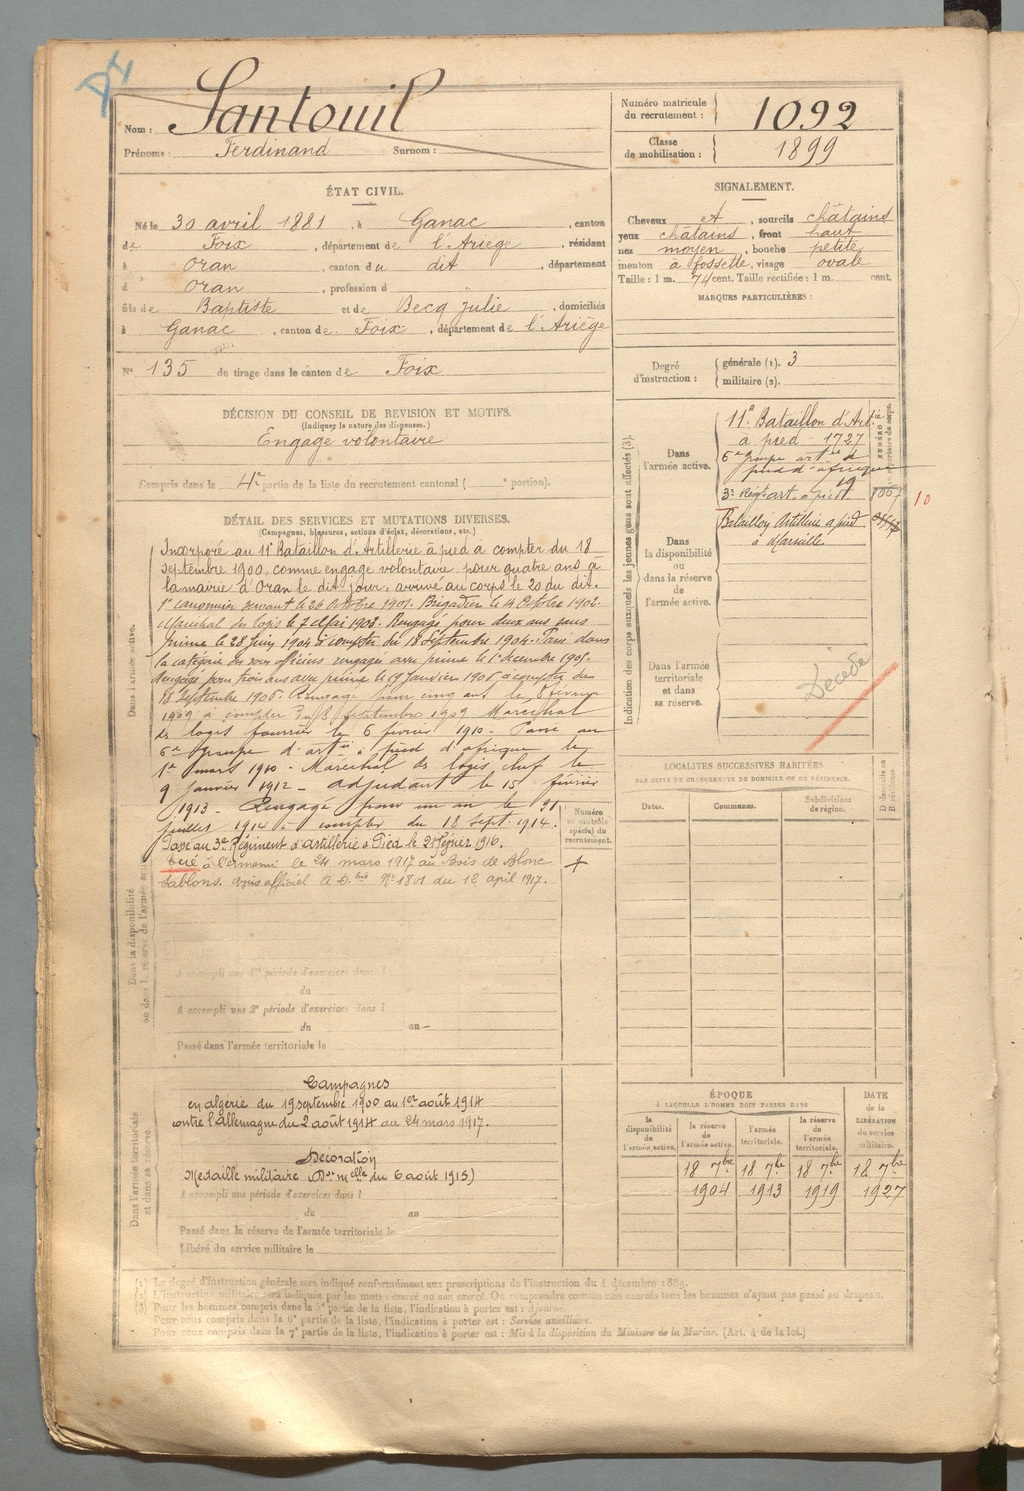 Nom : Santouil
Prénoms : Ferdinand Surnom :
Numéro matricule du recrutement : 1092
Classe de mobilisation : 1899
ÉTAT CIVIL.
Né le 30 avril 1881, à Ganac, canton
de Foix, département de l'Ariège, résidant
à Oran, canton du dit, département
d Oran, profession d "
fils de Baptiste et de Becq Julie, domiciliés
à Ganac, canton de Foix, département de l'Ariège
N° 135 de tirage dans le canton de Foix
SIGNALEMENT.
Cheveux et, sourcils châtains
yeux châtains, front haut
nez moyen, bouche petite
menton à fossette, visage ovale
Taille : 1 m. 74 cent. Taille rectifiée : 1 m. cent.
MARQUES PARTICULIÈRES :
Degré d'instruction : générale (1). 3
militaire (2).
DÉCISION DU CONSEIL DE REVISION ET MOTIFS.
(Indiquez la nature des dispenses.)
Engagé volontaire
Compris dans la 4e partie de la liste du recrutement cantonal ( e portion).
DÉTAIL DES SERVICES ET MUTATIONS DIVERSES.
(Campagnes, blessures, actions d'éclat, décorations, etc.)
Dans l'armée active.
Incorporé au 11e Bataillon d'Artillerie à pied à compter du 18
septembre 1900, comme engagé volontaire pour quatre ans à
la mairie d'Oran le dit jour, arrivé au corps le 20 du dit.
1er canonnier servant le 26 octobre 1901. Brigadier le 14 Octobre 1902.
Maréchal des logis le 7 Mai 1903. Rengagé pour deux ans sans
prime le 28 Juin 1904 à compter du 18 Septembre 1904. Passé dans
la catégorie des sous officiers rengagés avec prime le 1er décembre 1905.
Rengagé pour trois ans avec prime le 19 Janvier 1906 à compter du
18 Septembre 1906. Rengagé pour cinq ans le 8 février
1909 à compter du 18 Septembre 1909 Maréchal
des logis fourrier le 6 février 1910 - Passé au
6e groupe d'artie à pied d'afrique le
1er mars 1910 - Maréchal des logis chef le
9 janvier 1912 - adjudant le 15 février
1913 - Rengagé pour un an le 31
juillet 1914 à compter du 18 Sept. 1914.
Passé au 3e Régiment d'artillerie à Pied le 21 Février 1916.
Tué à l'ennemi le 24 mars 1917 au Bois de Blanc
Sablons. Avis officiel N° 1801 du 12 april 1917.
Numéro au contrôle spécial du recrutement.
+
Dans la disponibilité ou dans la réserve de l'armée active.
A accompli une 1re période d'exercices dans l
du
A accompli une 2e période d'exercices dans l
du au
Passé dans l'armée territoriale le
Indication des corps auxquels les jeunes gens sont affectés (3).
Dans l'armée active.
11e Bataillon d'Artie
à pied 1727
6e groupe artie à
pied d'afrique
3e Régt art. à pied
10
Dans la disponibilité ou dans la réserve de l'armée active.
Bataillon Artillerie à pied
à Marseille
Dans l'armée territoriale et dans sa réserve.
Décédé
LOCALITÉS SUCCESSIVES HABITÉES
PAR SUITE DE CHANGEMENTS DE DOMICILE OU DE RÉSIDENCE.
Dates. Communes. Subdivisions de région. D domicile ou R résidence.
Dans l'armée territoriale et dans sa réserve.
Campagnes
en algérie du 19 septembre 1900 au 1er août 1914
contre l'allemagne du 2 août 1914 au 24 mars 1917.
Décoration
Médaille militaire (Don melle du 6 août 1915)
A accompli une période d'exercices dans l
du au
Passé dans la réserve de l'armée territoriale le
Libéré du service militaire le
ÉPOQUE
À LAQUELLE L'HOMME DOIT PASSER DANS
la disponibilité de l'armée active. la réserve de l'armée active. l'armée territoriale. la réserve de l'armée territoriale.
DATE de la LIBÉRATION du service militaire.
18 7bre 18 7bre 18 7bre 18 7bre
1904 1913 1919 1927
(1) Le degré d'instruction générale sera indiqué conformément aux prescriptions de l'instruction du 4 décembre 1889.
(2) L'instruction militaire sera indiquée par les mots : exercé ou non exercé. On comprendra comme non exercés tous les hommes n'ayant pas passé au drapeau.
(3) Pour les hommes compris dans la 5e partie de la liste, l'indication à porter est : Ajourné.
Pour ceux compris dans la 6e partie de la liste, l'indication à porter est : Service auxiliaire.
Pour ceux compris dans la 7e partie de la liste, l'indication à porter est : Mis à la disposition du Ministre de la Marine. (Art. 4 de la loi.)